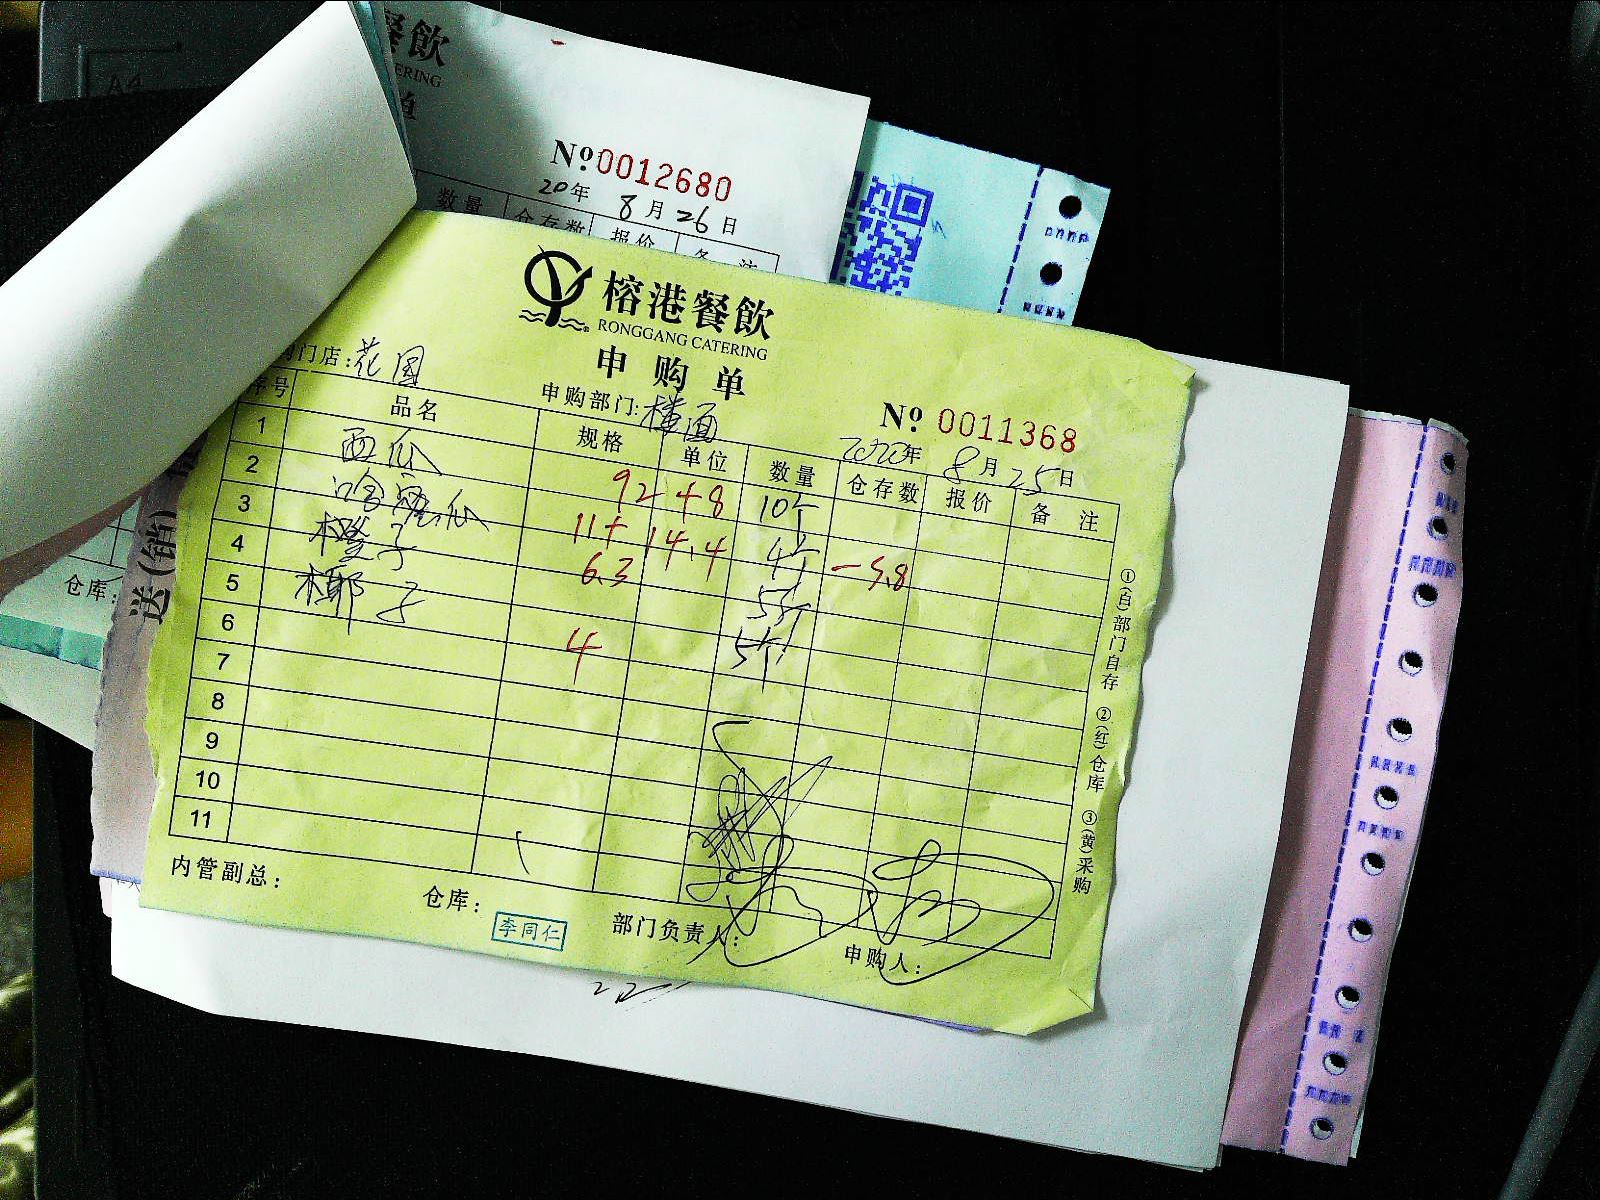 餐飲
ERING
单
No 0012680
20年 8月26日
数量 仓存数 报价 备 注
榕港餐飲
RONGGANG CATERING
申购单
门店:花园
申购部门:楼面
No 0011368
2020年 8月25日
序号 品名 规格 单位 数量 仓存数 报价 备 注
1 西瓜 92 +8 10个
2 哈密瓜 11+ 14.4 4个 -5.8
3 橙子 6.3 5斤
4 椰子 4 5个
5
6
7
8
9
10
11
①(白)部门自存 ②(红)仓库 ③(黄)采购
内管副总:
仓库:
李同仁
部门负责人:
申购人:
仓库:
送(销)
A4